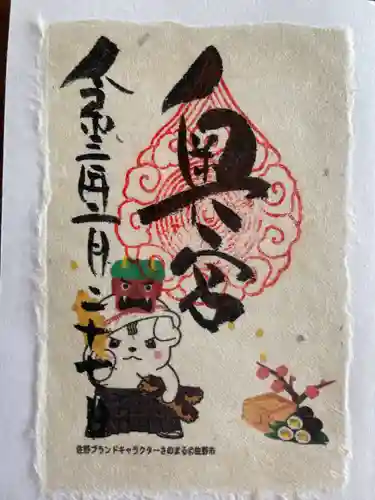 奥宮
令和二年二月二十七日
佐野ブランドキャラクターさのまる©佐野市